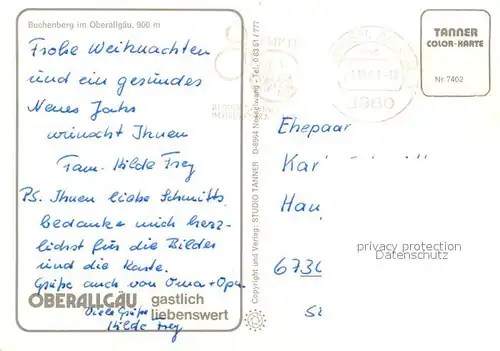 Buchenberg im Oberallgäu, 900 m
Frohe Weihnachten
und ein gesundes
Neues Jahr
wünscht Ihnen
Fam. Hilde Frey
PS. Ihnen liebe Schmitts,
bedanke mich herz-
lichst für die Bilder
und die Karte.
Grüße auch von Oma + Opa.
OBERALLGÄU gastlich
liebenswert
Viele Grüße
Hilde Frey
Copyright und Verlag: STUDIO TANNER D-8964 Nesselwang - Tel. 0 83 61 / 777
8960
TANNER
COLOR-KARTE
Nr. 7402
Ehepaar
Kar
Hau
privacy protection
watermark
© Ansichtskarten-Center.de
673